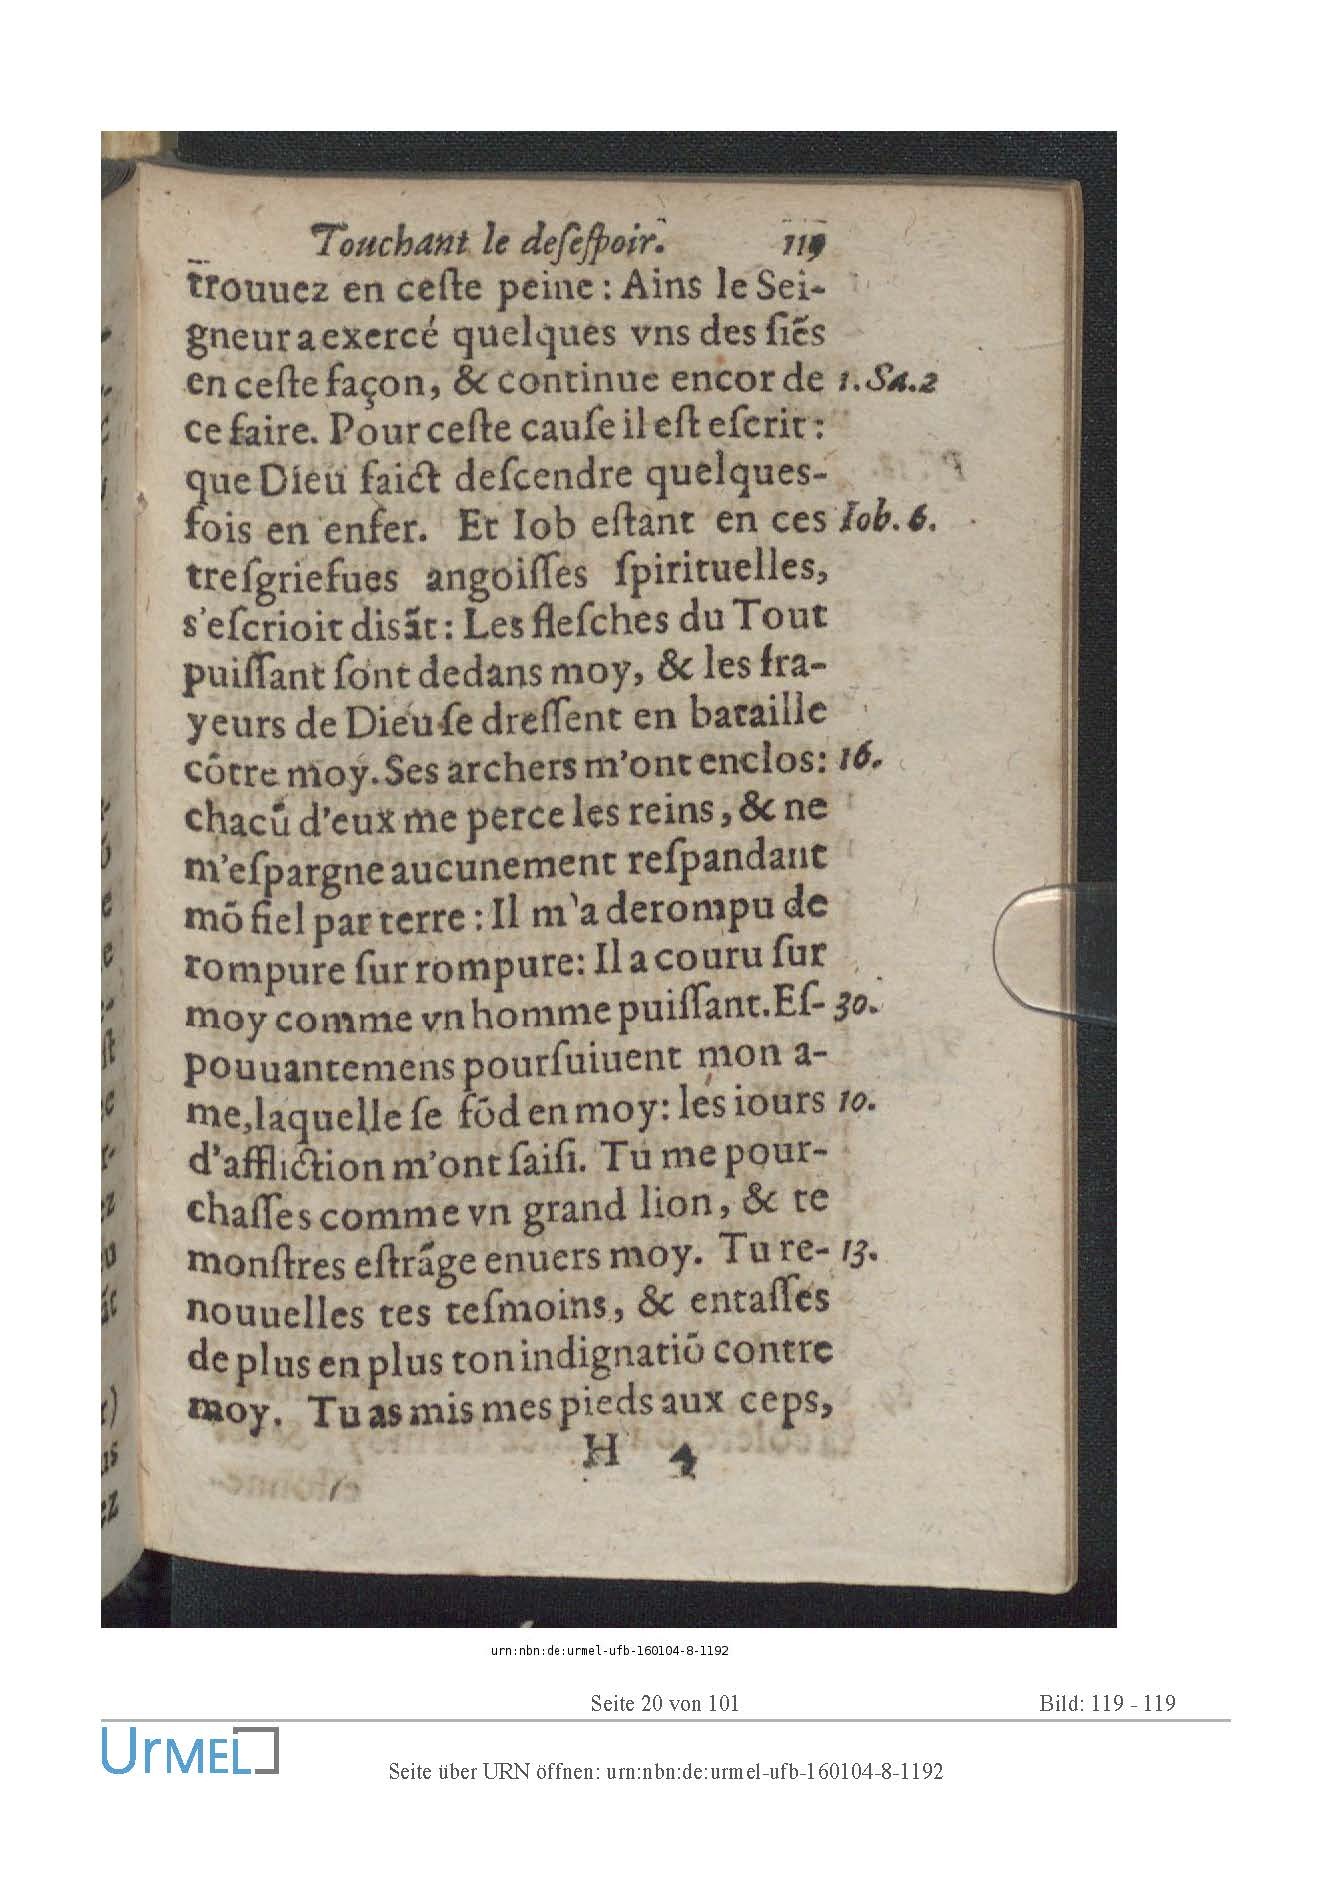 Touchant le deſeſpoir. 119
trouuez en ceſte peine : Ains le Sei-
gneur a exercé quelques vns des ſiẽs
en ceſte façon, & continue encor de 1. Sa. 2
ce faire. Pour ceſte cauſe il eſt eſcrit :
que Dieu faict deſcendre quelques-
fois en enfer. Et Iob eſtant en ces Iob. 6.
treſgriefues angoiſſes ſpirituelles,
s'eſcrioit disãt : Les fleſches du Tout
puiſſant ſont dedans moy, & les fra-
yeurs de Dieu ſe dreſſent en bataille
cõtre moy. Ses archers m'ont enclos: 16.
chacũ d'eux me perce les reins, & ne
m'eſpargne aucunement reſpandant
mõ fiel par terre : Il m'a derompu de
rompure ſur rompure: Il a couru ſur
moy comme vn homme puiſſant. Eſ- 30.
pouuantemens pourſuiuent mon a-
me, laquelle ſe fõd en moy: les iours 10.
d'affliction m'ont ſaiſi. Tu me pour-
chaſſes comme vn grand lion, & te
monſtres eſtrãge enuers moy. Tu re- 13.
nouuelles tes teſmoins, & entaſſes
de plus en plus ton indignatiõ contre
moy. Tu as mis mes pieds aux ceps,
H 4
urn:nbn:de:urmel-ufb-160104-8-1192
Seite 20 von 101 Bild: 119 - 119
UrMEL
Seite über URN öffnen: urn:nbn:de:urmel-ufb-160104-8-1192